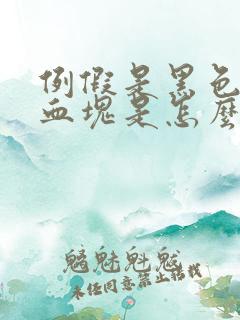 例假是黑色
血塊是怎麼
魑魅魁魃
未经同意禁止转载